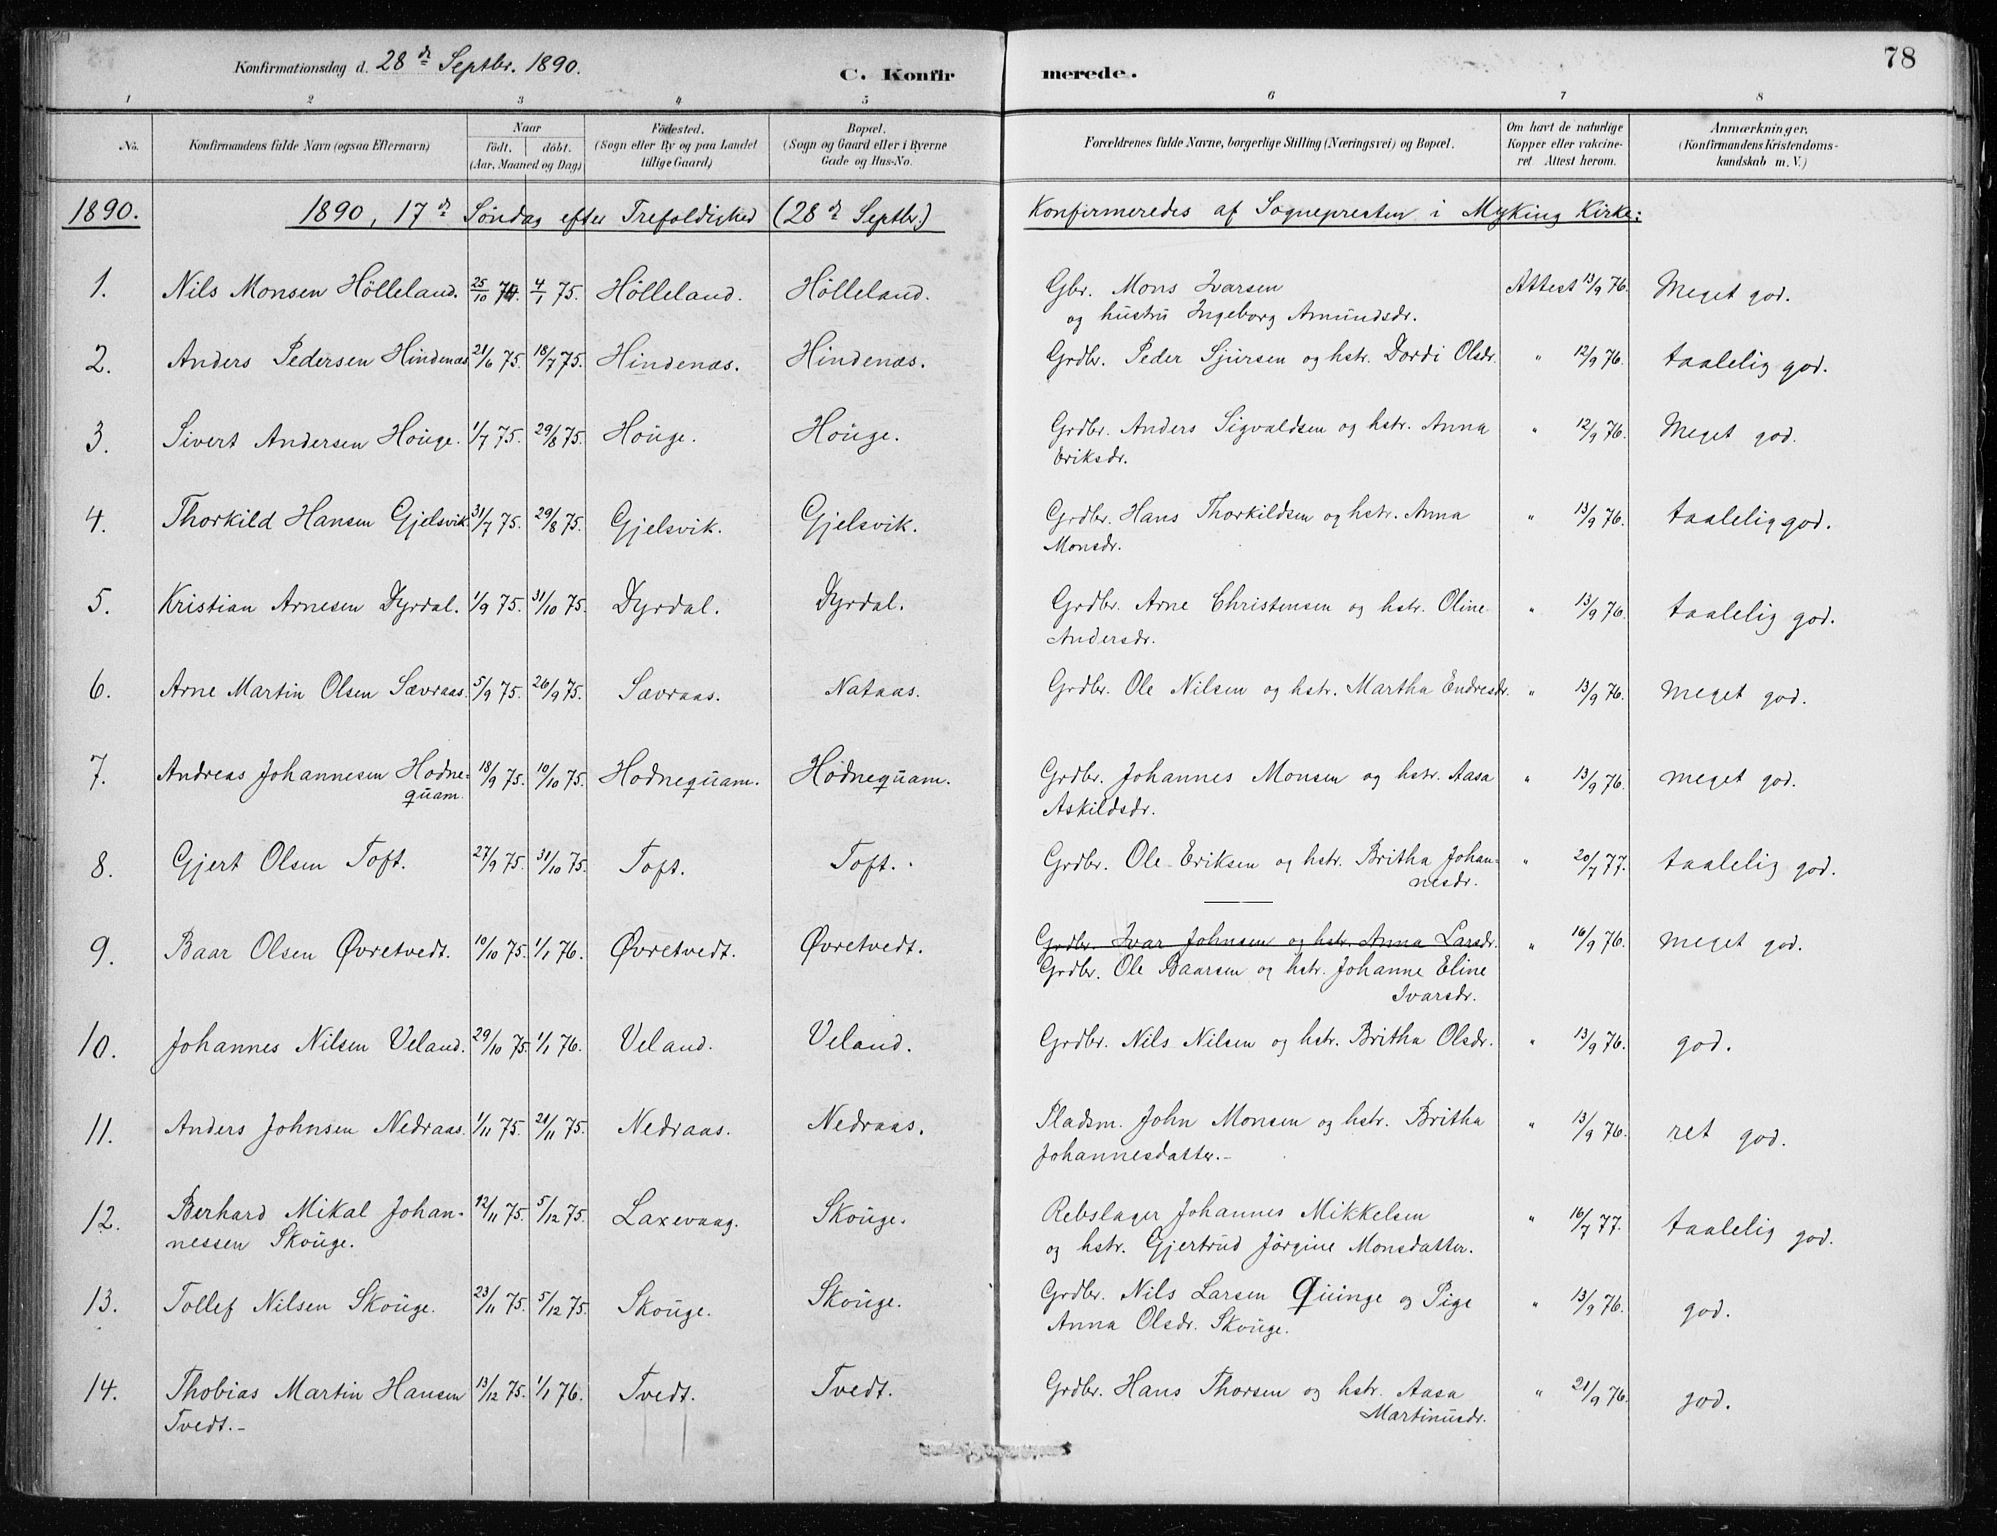 78
Konfirmationsdag d. 28de Septbr. 1890.
C. Konfirmerede.
1 2 3 4 5 6 7 8
No.
Konfirmandens fulde Navn (ogsaa Efternavn)
Naar
födt. döbt.
(Aar, Maaned og Dag)
Födested.
(Sogn eller By og paa Landet
tillige Gaard)
Bopæl.
(Sogn og Gaard eller i Byerne
Gade og Hus-No.
Forældrenes fulde Navne, borgerlige Stilling (Næringsvei) og Bopæl.
Om havt de naturlige
Kopper eller vakcine-
ret Attest herom.
Anmærkninger.
(Konfirmandens Kristendoms-
kundskab m. V.)
1890. 1890, 17de Søndag efter Trefoldighed (28de Septbr.) Konfirmeredes af Sognepresten i Myking Kirke:
1. Nils Monsen Hölleland. 25/10 74. 4/1 75. Hölleland. Hölleland. Gbr. Mons Ivarsen Attest 13/9 76. Meget god.
og hustru Ingeborg Amundsdr.
2. Anders Pedersen Hindenæs 21/6 75. 18/7 75. Hindenæs. Hindenæs. Grdbr. Peder Sjursen og hstr. Dordi Olsdr. " 12/9 76. taalelig god.
3. Sivert Andersen Houge. 1/7 75. 29/8 75. Houge. Houge. Grdbr. Anders Sigvaldsen og hstr. Anna " 12/9 76. Meget god.
Eriksdr.
4. Thorkild Hansen Gjelsvik. 31/7 75. 29/8 75. Gjelsvik. Gjelsvik. Grdbr. Hans Thorkildsen og hstr. Anna " 13/9 76. taalelig god.
Monsdr.
5. Kristian Arnesen Dyrdal. 1/9 75. 31/10 75. Dyrdal. Dyrdal. Grdbr. Arne Christensen og hstr. Oline " 13/9 76. taalelig god.
Andersdr.
6. Arne Martin Olsen Sævraas. 5/9 75. 26/9 75. Sævraas. Nataas. Grdbr. Ole Nilsen og hstr. Martha Endresdr. " 13/9 76. meget god.
7. Andreas Johannesen Hodne- 18/9 75. 10/10 75. Hodnequam. Hodnequam. Grdbr. Johannes Monsen og hstr. Aasa " 13/9 76. meget god.
quam. Askildsdr.
8. Gjert Olsen Toft. 27/9 75. 31/10 75. Toft. Toft. Grdbr. Ole Eriksen og hstr. Britha Johan- " 20/7 77. taalelig god.
nesdr.
9. Baar Olsen Øvretvedt. 10/10 75. 1/1 76. Øvretvedt. Øvretvedt. Grdbr. Ivar Johnsen og hstr. Anna Larsdr. " 16/9 76. meget god.
Grdbr. Ole Baarsen og hstr. Johanne Eline
Ivarsdr.
10. Johannes Nilsen Veland. 29/10 75. 1/1 76. Veland. Veland. Grdbr. Nils Nilsen og hstr. Britha Olsdr. " 13/9 76. god.
11. Anders Johnsen Nedraas. 1/11 75. 21/11 75. Nedraas. Nedraas. Pladsm. John Monsen og hstr. Britha " 13/9 76. ret god.
Johannesdatter.-
12. Berhard Mikal Johan- 12/11 75. 5/12 75. Laxevaag. Skouge. Rebslager Johannes Mikkelsen " 16/7 77. taalelig god.
nessen Skouge. og hstr. Gjertrud Jörgine Monsdatter.
13. Tollef Nilsen Skouge. 23/11 75. 5/12 75. Skouge. Skouge. Grdbr. Nils Larsen Quinge og Pige " 13/9 76. god.
Anna Olsdr. Skouge.
14. Thobias Martin Hansen 13/12 75. 1/1 76. Tvedt. Tvedt. Grdbr. Hans Thorsen og hstr. Aasa " 21/9 76. god.
Tvedt.- Martinusdr.